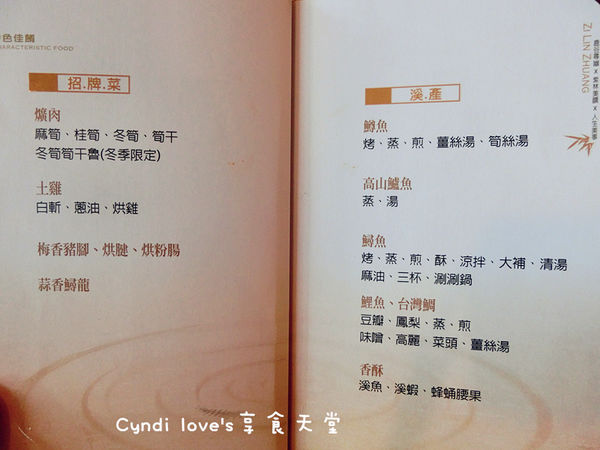 色佳餚
CHARACTERISTIC FOOD
招.牌.菜
爌肉
麻筍、桂筍、冬筍、筍干
冬筍筍干魯(冬季限定)
土雞
白斬、蔥油、烘雞
梅香豬腳、烘腱、烘粉腸
蒜香鱘龍
ZI LIN ZHUANG
溪.產
鱒魚
烤、蒸、煎、薑絲湯、筍絲湯
高山鱸魚
蒸、湯
鱘魚
烤、蒸、煎、酥、涼拌、大補、清湯
麻油、三杯、涮涮鍋
鯉魚、台灣鯛
豆瓣、鳳梨、蒸、煎
味噌、高麗、菜頭、薑絲湯
香酥
溪魚、溪蝦、蜂蛹腰果
Cyndi love's享食天堂